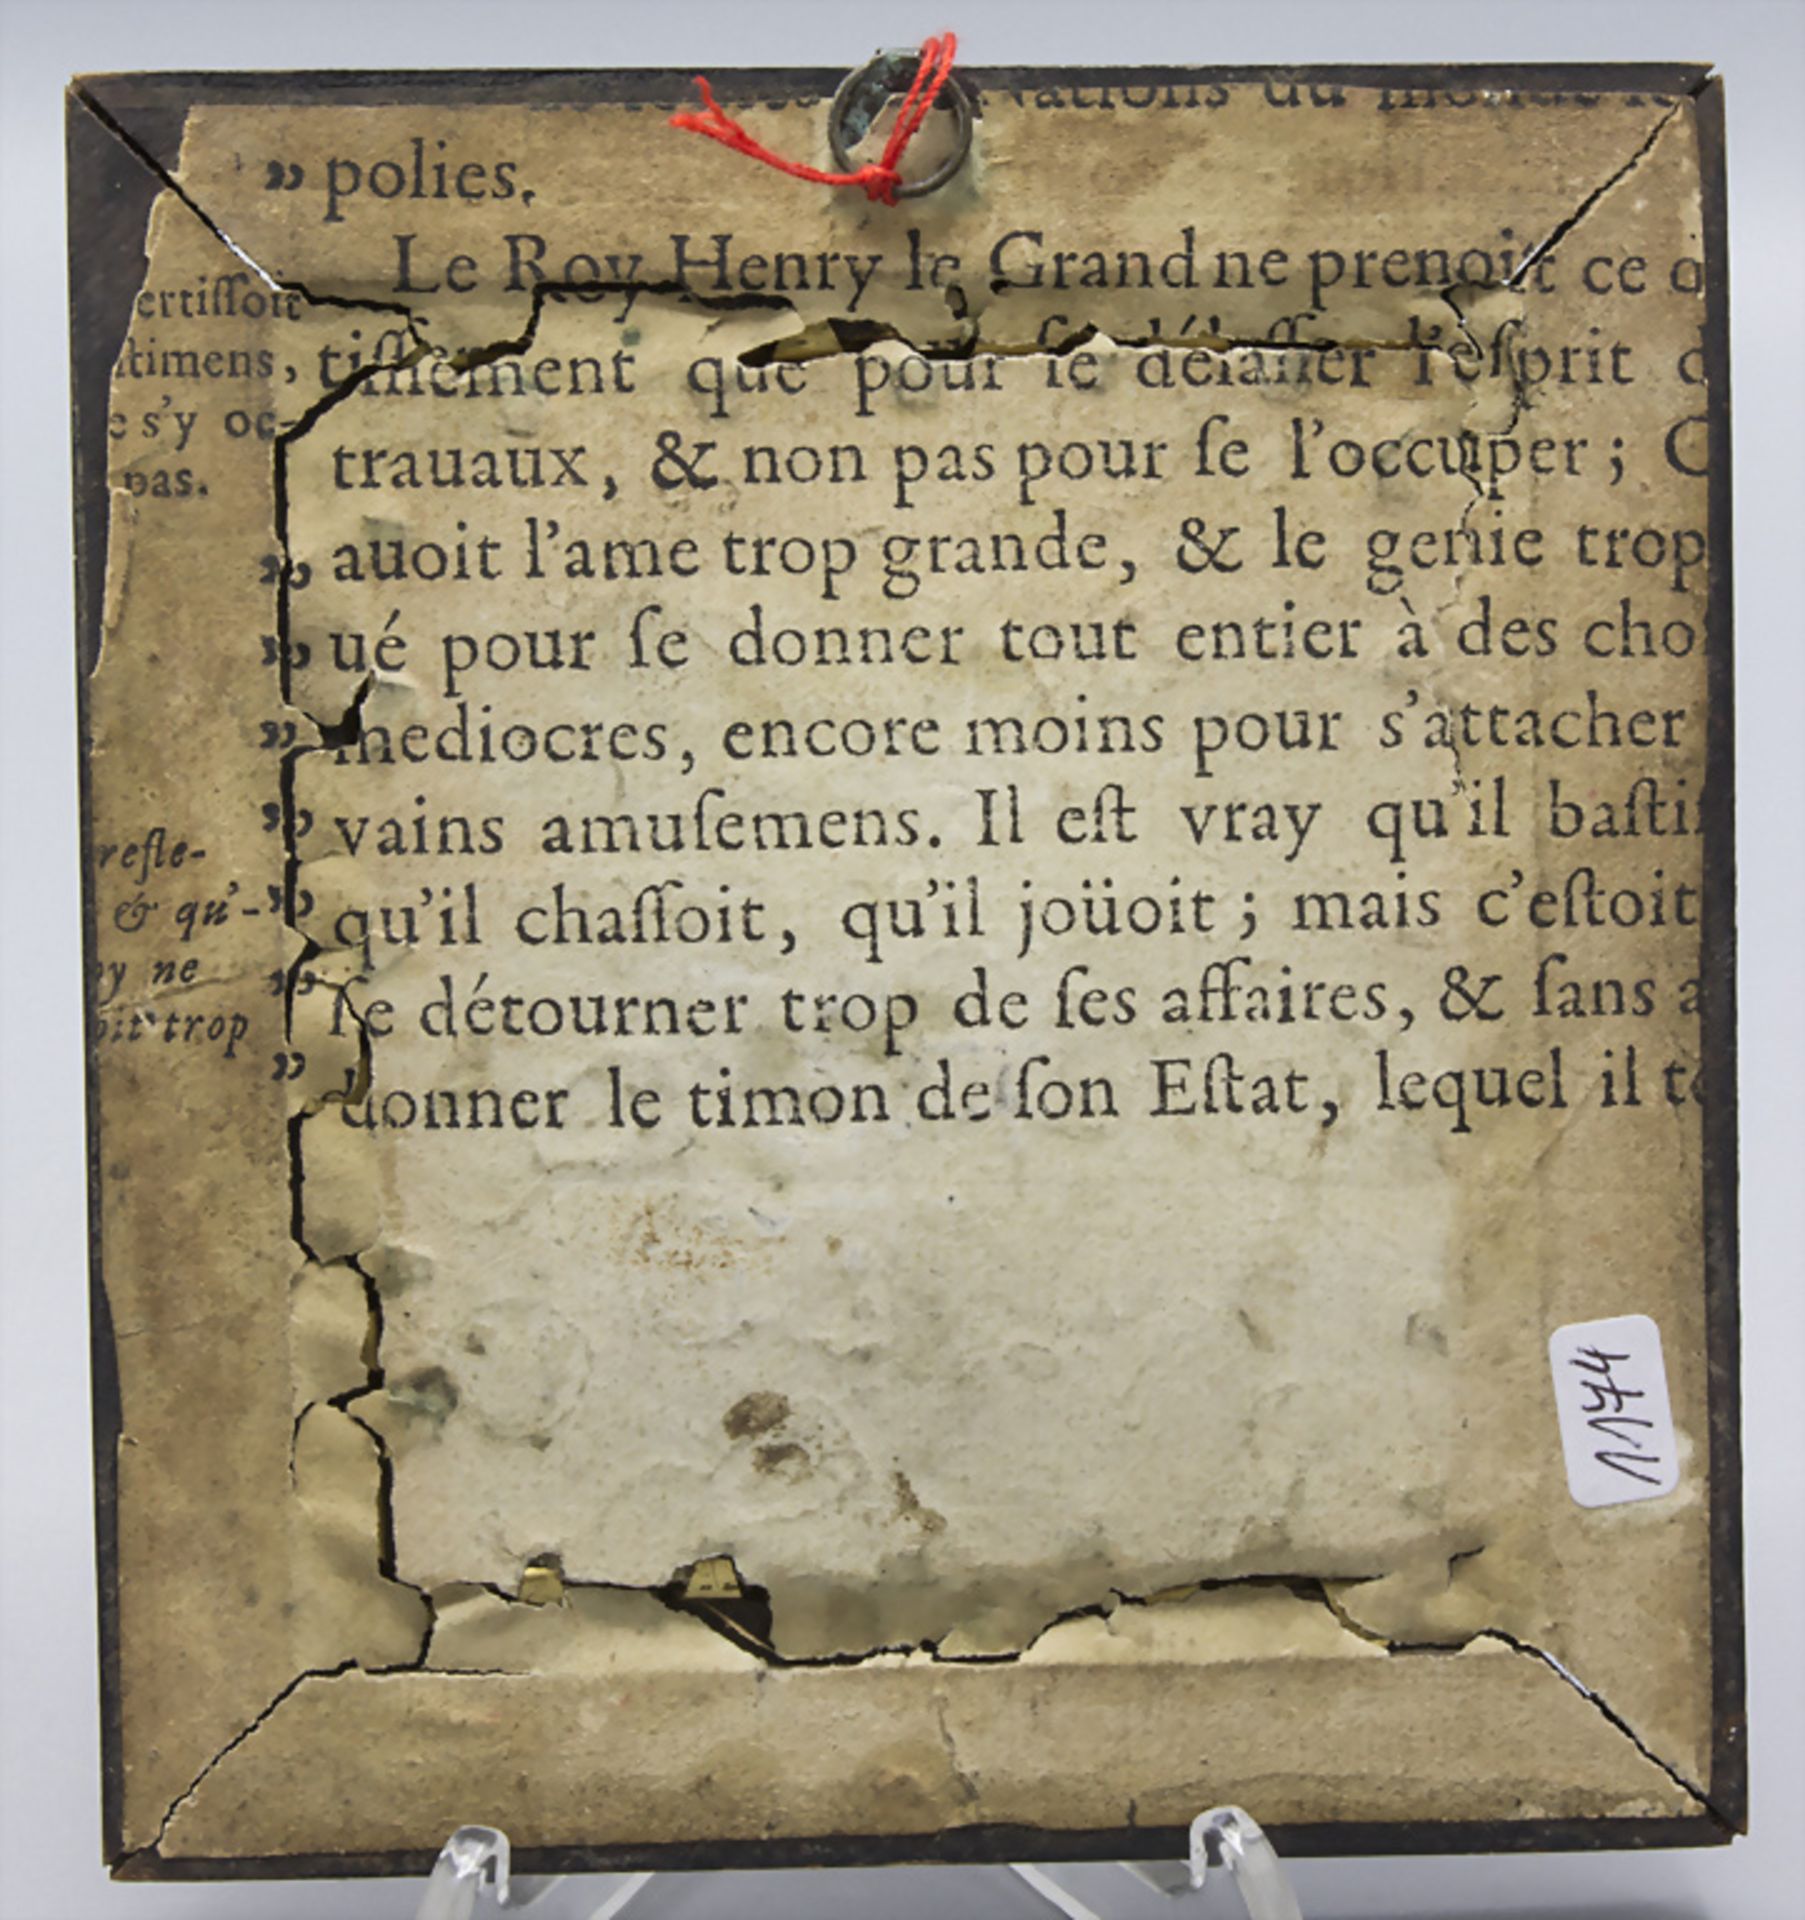 Nations du monde
„ polies.
Le Roy Henry le Grand ne prenoit ce
tiſſement que pour ſe délaſſer l'eſprit d
trauaux, & non pas pour ſe l'occuper ; C
„ auoit l'ame trop grande, & le genie trop
„ ué pour ſe donner tout entier à des cho
„ mediocres, encore moins pour s'attacher
„ vains amuſemens. Il eſt vray qu'il baſti
„ qu'il chaſſoit, qu'il joüoit ; mais c'eſtoit
„ ſe détourner trop de ſes affaires, & ſans a
„ donner le timon de ſon Eſtat, lequel il t
ertiſſoit
timens,
e s'y oc-
pas.
refle-
& qu'-
y ne
oit trop